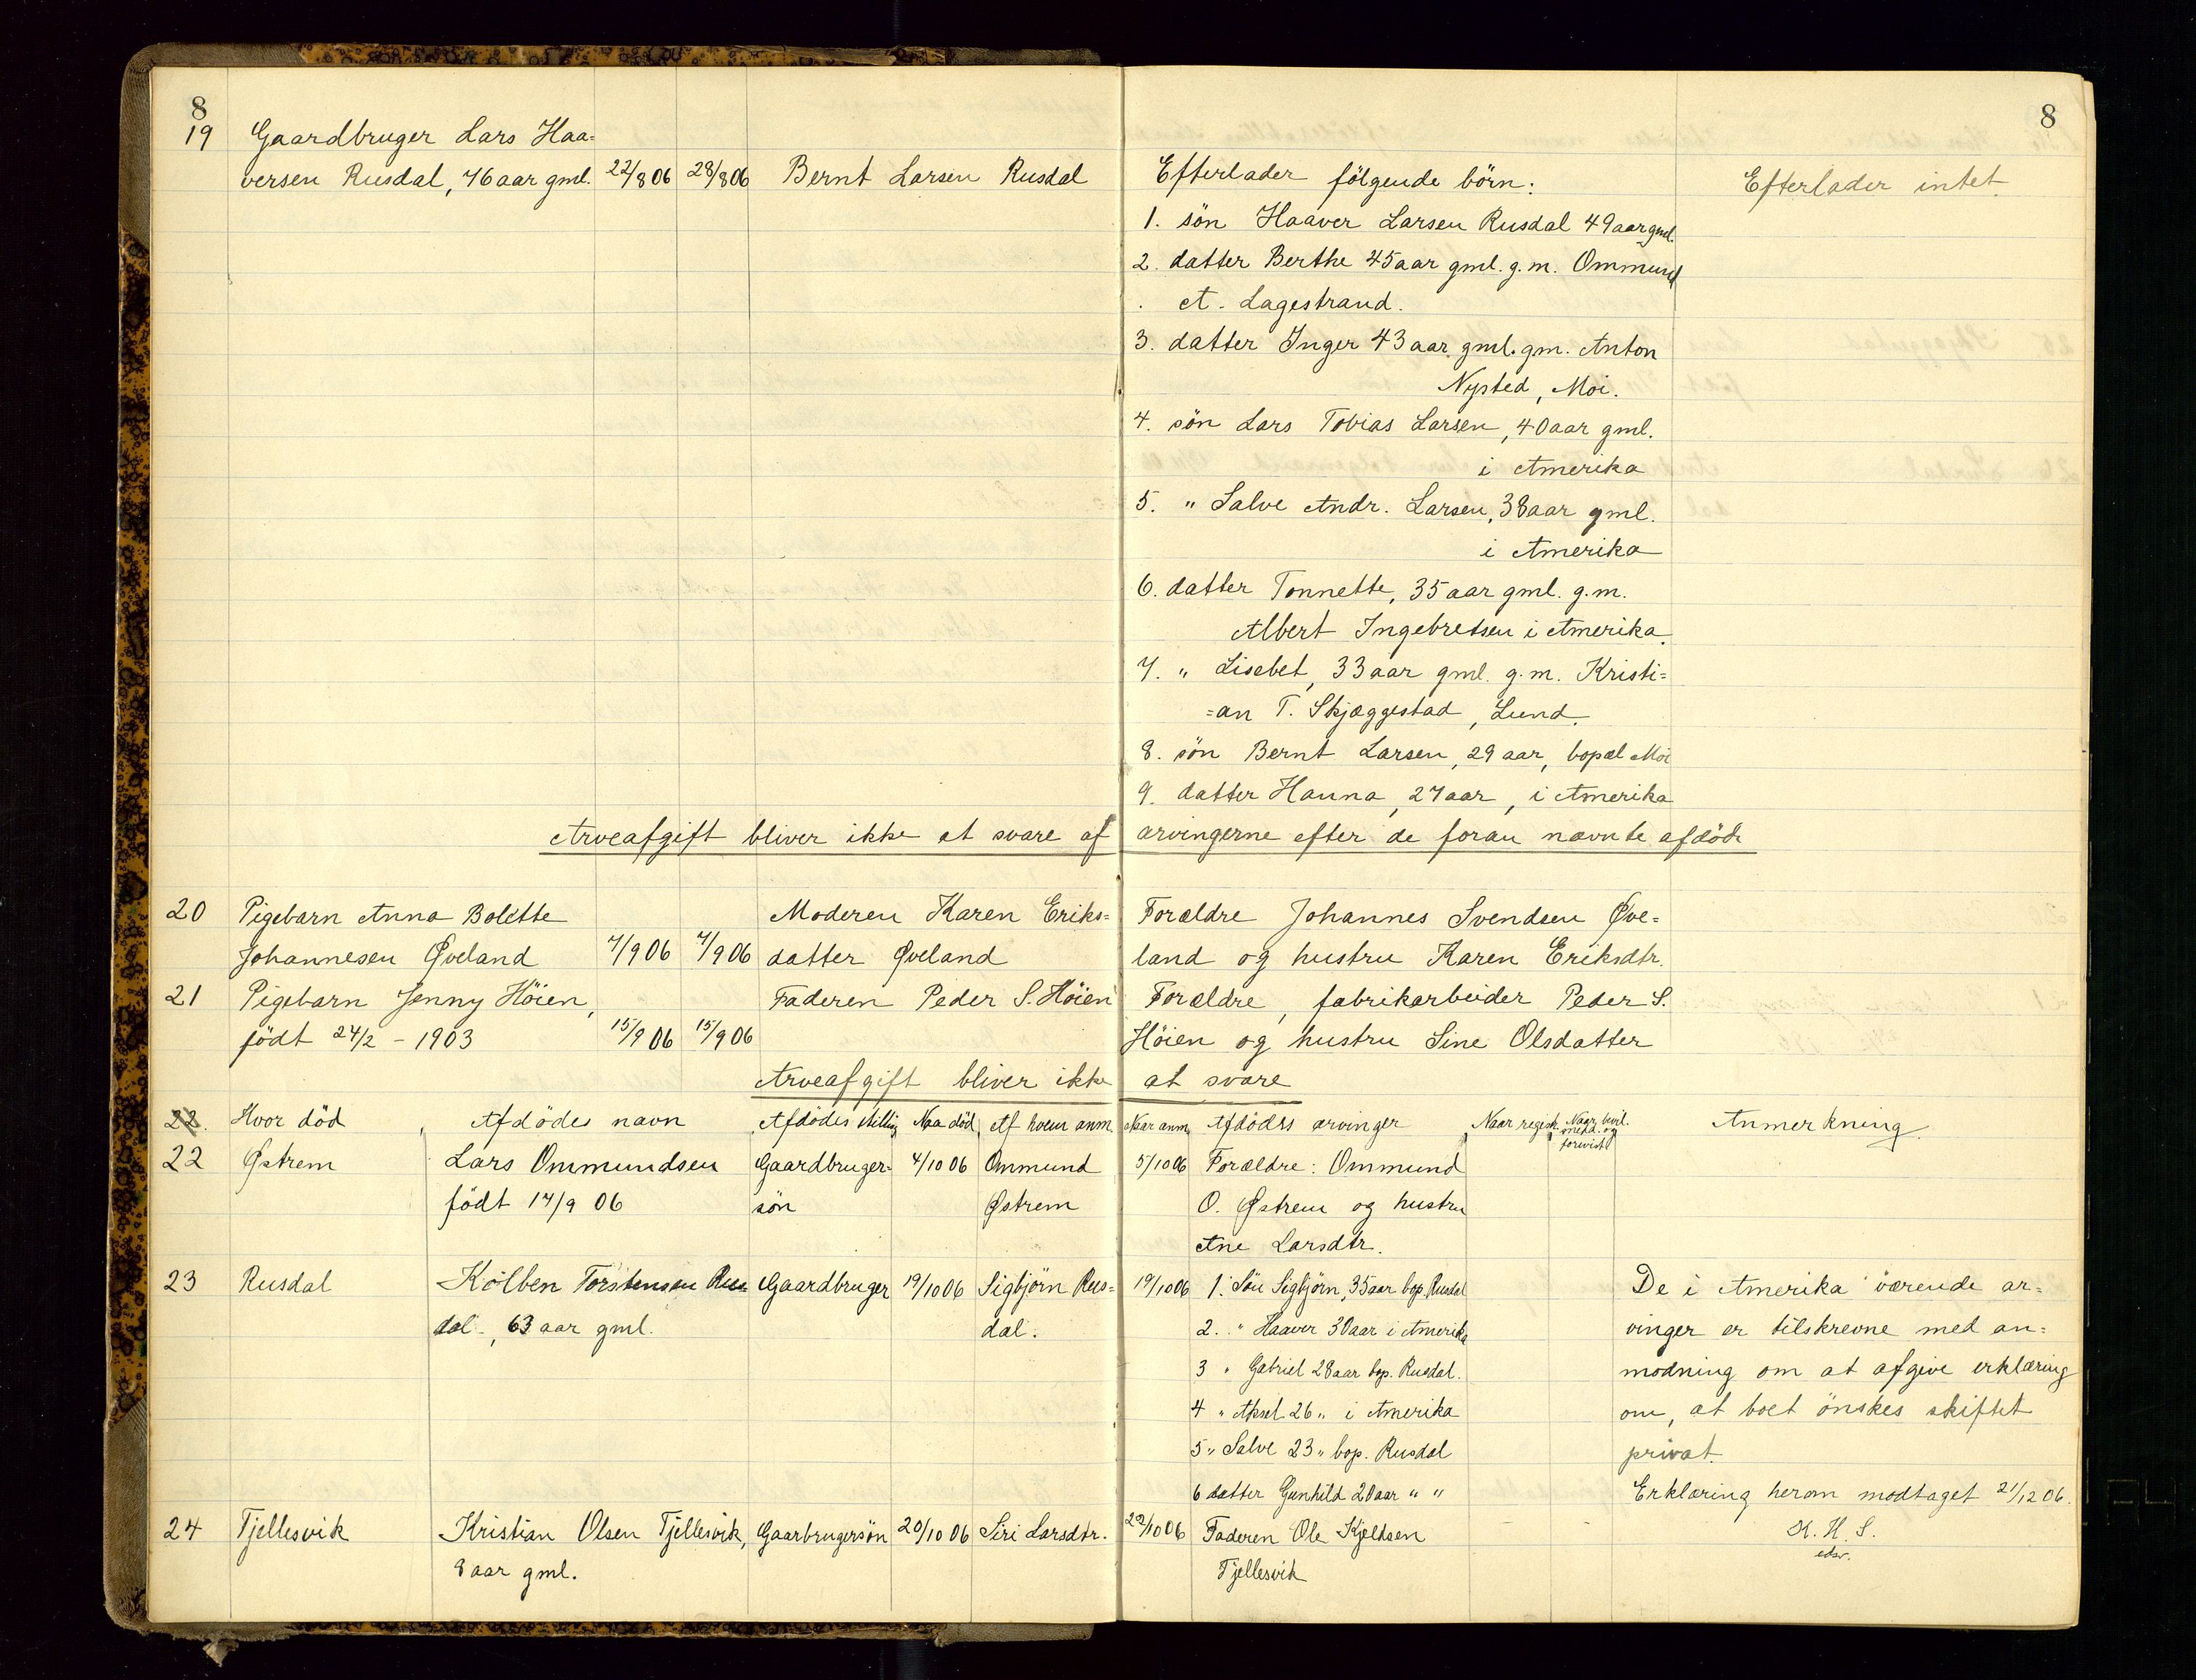 8
8
19 Gaardbruger Lars Haa=
versen Rusdal, 76 aar gml. 22/8 06 28/8 06 Bernt Larsen Rusdal Efterlader følgende börn: Efterlader intet.
1. sön Haaver Larsen Rusdal 49 aar gml.
2. datter Berthe 45 aar gml. g.m. Ommund
A. Lagestrand.
3. datter Inger 43 aar gml. gm. Anton
Nysted, Moi.
4. sön Lars Tobias Larsen, 40 aar gml.
i Amerika
5. " Salve Andr. Larsen, 38 aar gml.
i Amerika
6. datter Tonnette, 35 aar gml. g.m.
Albert Ingebretsen i Amerika.
7. " Lisebet, 33 aar gml. g.m. Kristi=
=an T. Skjæggestad, Lund.
8. sön Bernt Larsen, 29 aar, bopæl Moi
9. datter Hanna, 27 aar, i Amerika
Arveafgift bliver ikke at svare af arvingerne efter de foran nævnte afdöde
20 Pigebarn Anna Bolette Moderen Karen Eriks= Forældre Johannes Svendsen Øve=
Johannesen Øveland 7/9 06 7/9 06 datter Øveland land og hustru Karen Eriksdtr.
21 Pigebarn Jenny Höien, Faderen Peder S. Höien Forældre, fabrikarbeider Peder S.
födt 24/2 - 1903 15/9 06 15/9 06 Höien og hustru Sine Olsdatter
Arveafgift bliver ikke at svare
22. Hvor död Afdödes navn Afdödes stilling Naa död Af hvem anm. Naar anm. Afdödes arvinger Naar regist. Naar bevil. medd. og forevist Anmerkning.
22 Østrem Lars Ommundsen Gaardbruger= 4/10 06 Ommund 5/10 06 Forældre: Ommund
födt 17/9 06 sön Østrem O. Østrem og hustru
Ane Larsdtr.
23 Rusdal Kolben Torstensen Rus= Gaardbruger 19/10 06 Sigbjörn Rus= 19/10 06 1. Sön Sigbjörn, 35 aar bop. Rusdal De i Amerika værende ar=
dal, 63 aar gml. dal. 2. " Haaver 30 aar i Amerika vinger er tilskrevne med an=
3 " Gabriel 28 aar bop. Rusdal. modning om at afgive erklæring
4 " Aksel 26 " i Amerika om, at boet önskes skiftet
5 " Salve 23 " bop. Rusdal privat.
6 datter Gunhild 20 aar " " Erklæring herom modtaget 21/12 06.
24 Tjellesvik Kristian Olsen Tjellesvik, Gaarbrugersön 20/10 06 Siri Larsdtr. 22/10 06 Faderen Ole Kjeldsen K. H. S.
8 aar gml. Tjellesvik